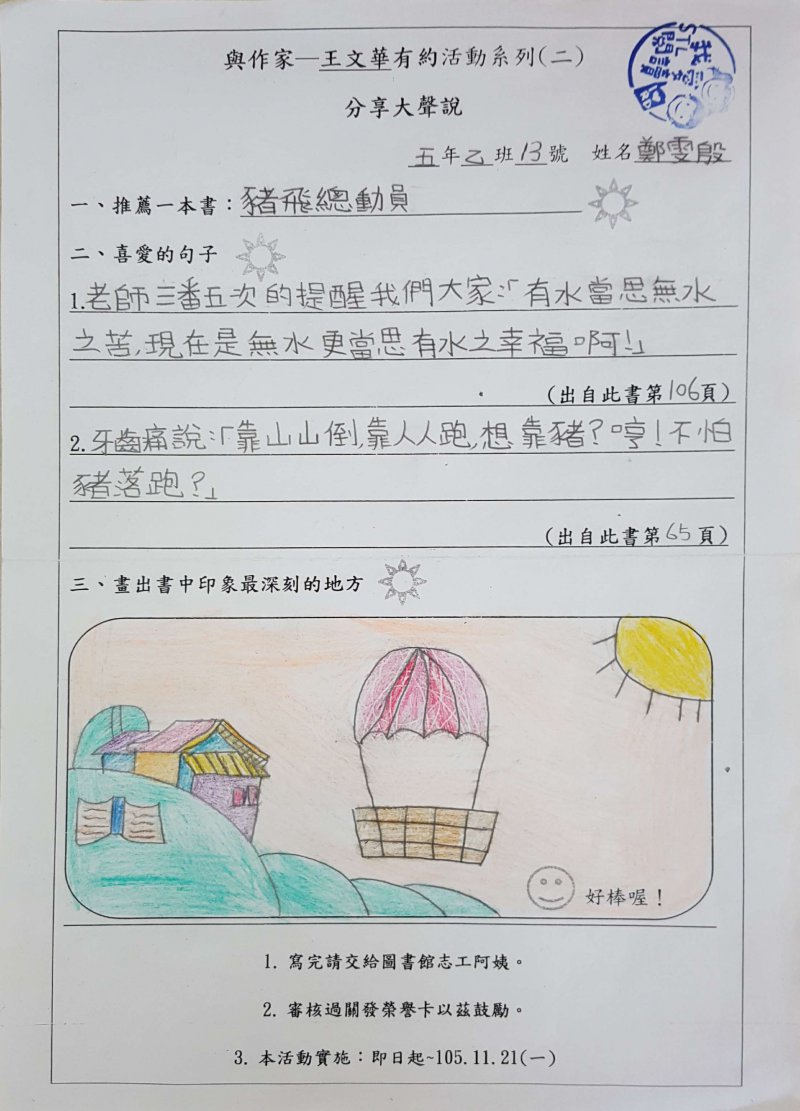 與作家—王文華有約活動系列(二)
分享大聲說
五年乙班13號 姓名鄭雯殷
一、推薦一本書：豬飛總動員
二、喜愛的句子
1.老師三番五次的提醒我們大家:「有水當思無水
之苦,現在是無水更當思有水之幸福啊!」
(出自此書第106頁)
2.牙齒痛說:「靠山山倒,靠人人跑,想靠豬?哼!不怕
豬落跑?」
(出自此書第65頁)
三、畫出書中印象最深刻的地方
好棒喔！
1. 寫完請交給圖書館志工阿姨。
2. 審核過關發榮譽卡以茲鼓勵。
3. 本活動實施：即日起~105.11.21(一)